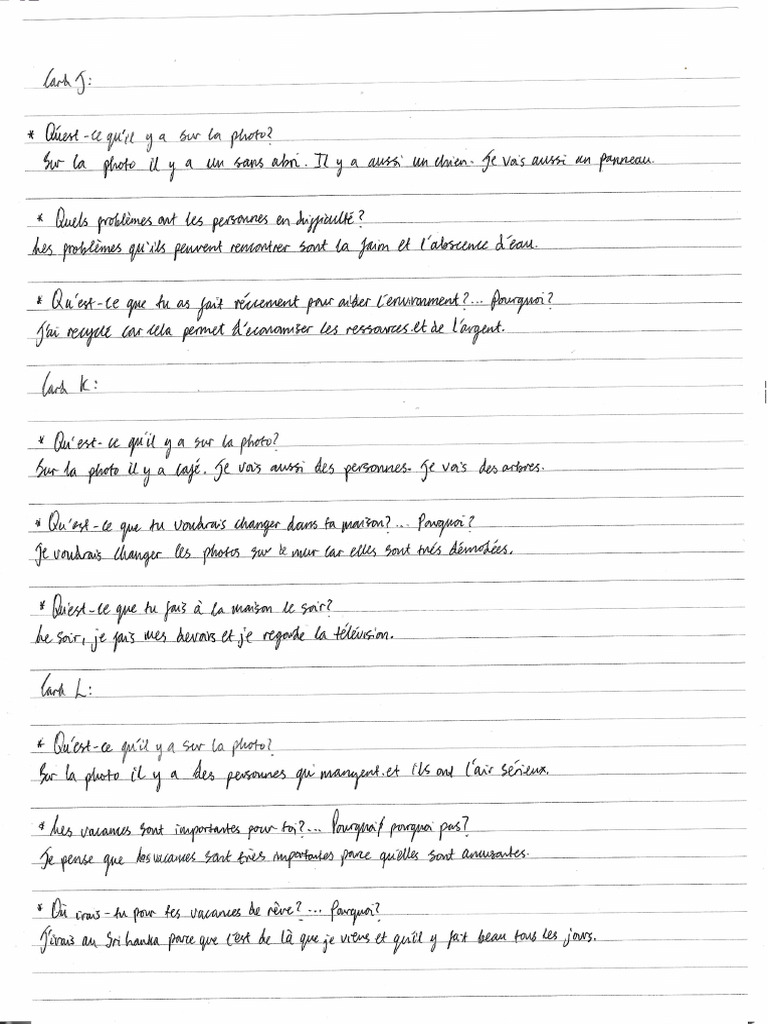 Card J:
* Qu'est-ce qu'il y a sur la photo?
Sur la photo il y a un sans abri. Il y a aussi un chien. Je vois aussi un panneau.
* Quels problèmes ont les personnes en difficulté?
Les problèmes qu'ils peuvent rencontrer sont la faim et l'abscence d'eau.
* Qu'est-ce que tu as fait récement pour aider l'environment?... Pourquoi?
J'ai recyclé car cela permet d'économiser les ressources et de l'argent.
Card K:
* Qu'est-ce qu'il y a sur la photo?
Sur la photo il y a café. Je vois aussi des personnes. Je vois des arbres.
* Qu'est-ce que tu voudrais changer dans ta maison?... Pourquoi?
Je voudrais changer les photos sur le mur car elles sont très démodées.
* Qu'est-ce que tu fais à la maison le soir?
Le soir, je fais mes devoirs et je regarde la télévision.
Card L:
* Qu'est-ce qu'il y a sur la photo?
Sur la photo il y a des personnes qui mangent et ils ont l'air sérieux.
* Les vacances sont importantes pour toi?... Pourquoi/ pourquoi pas?
Je pense que les vacances sont très importantes parce qu'elles sont amusantes.
* Où irais-tu pour tes vacances de rêve?... Pourquoi?
J'irais au Sri Lanka parce que c'est de là que je viens et qu'il y fait beau tous les jours.